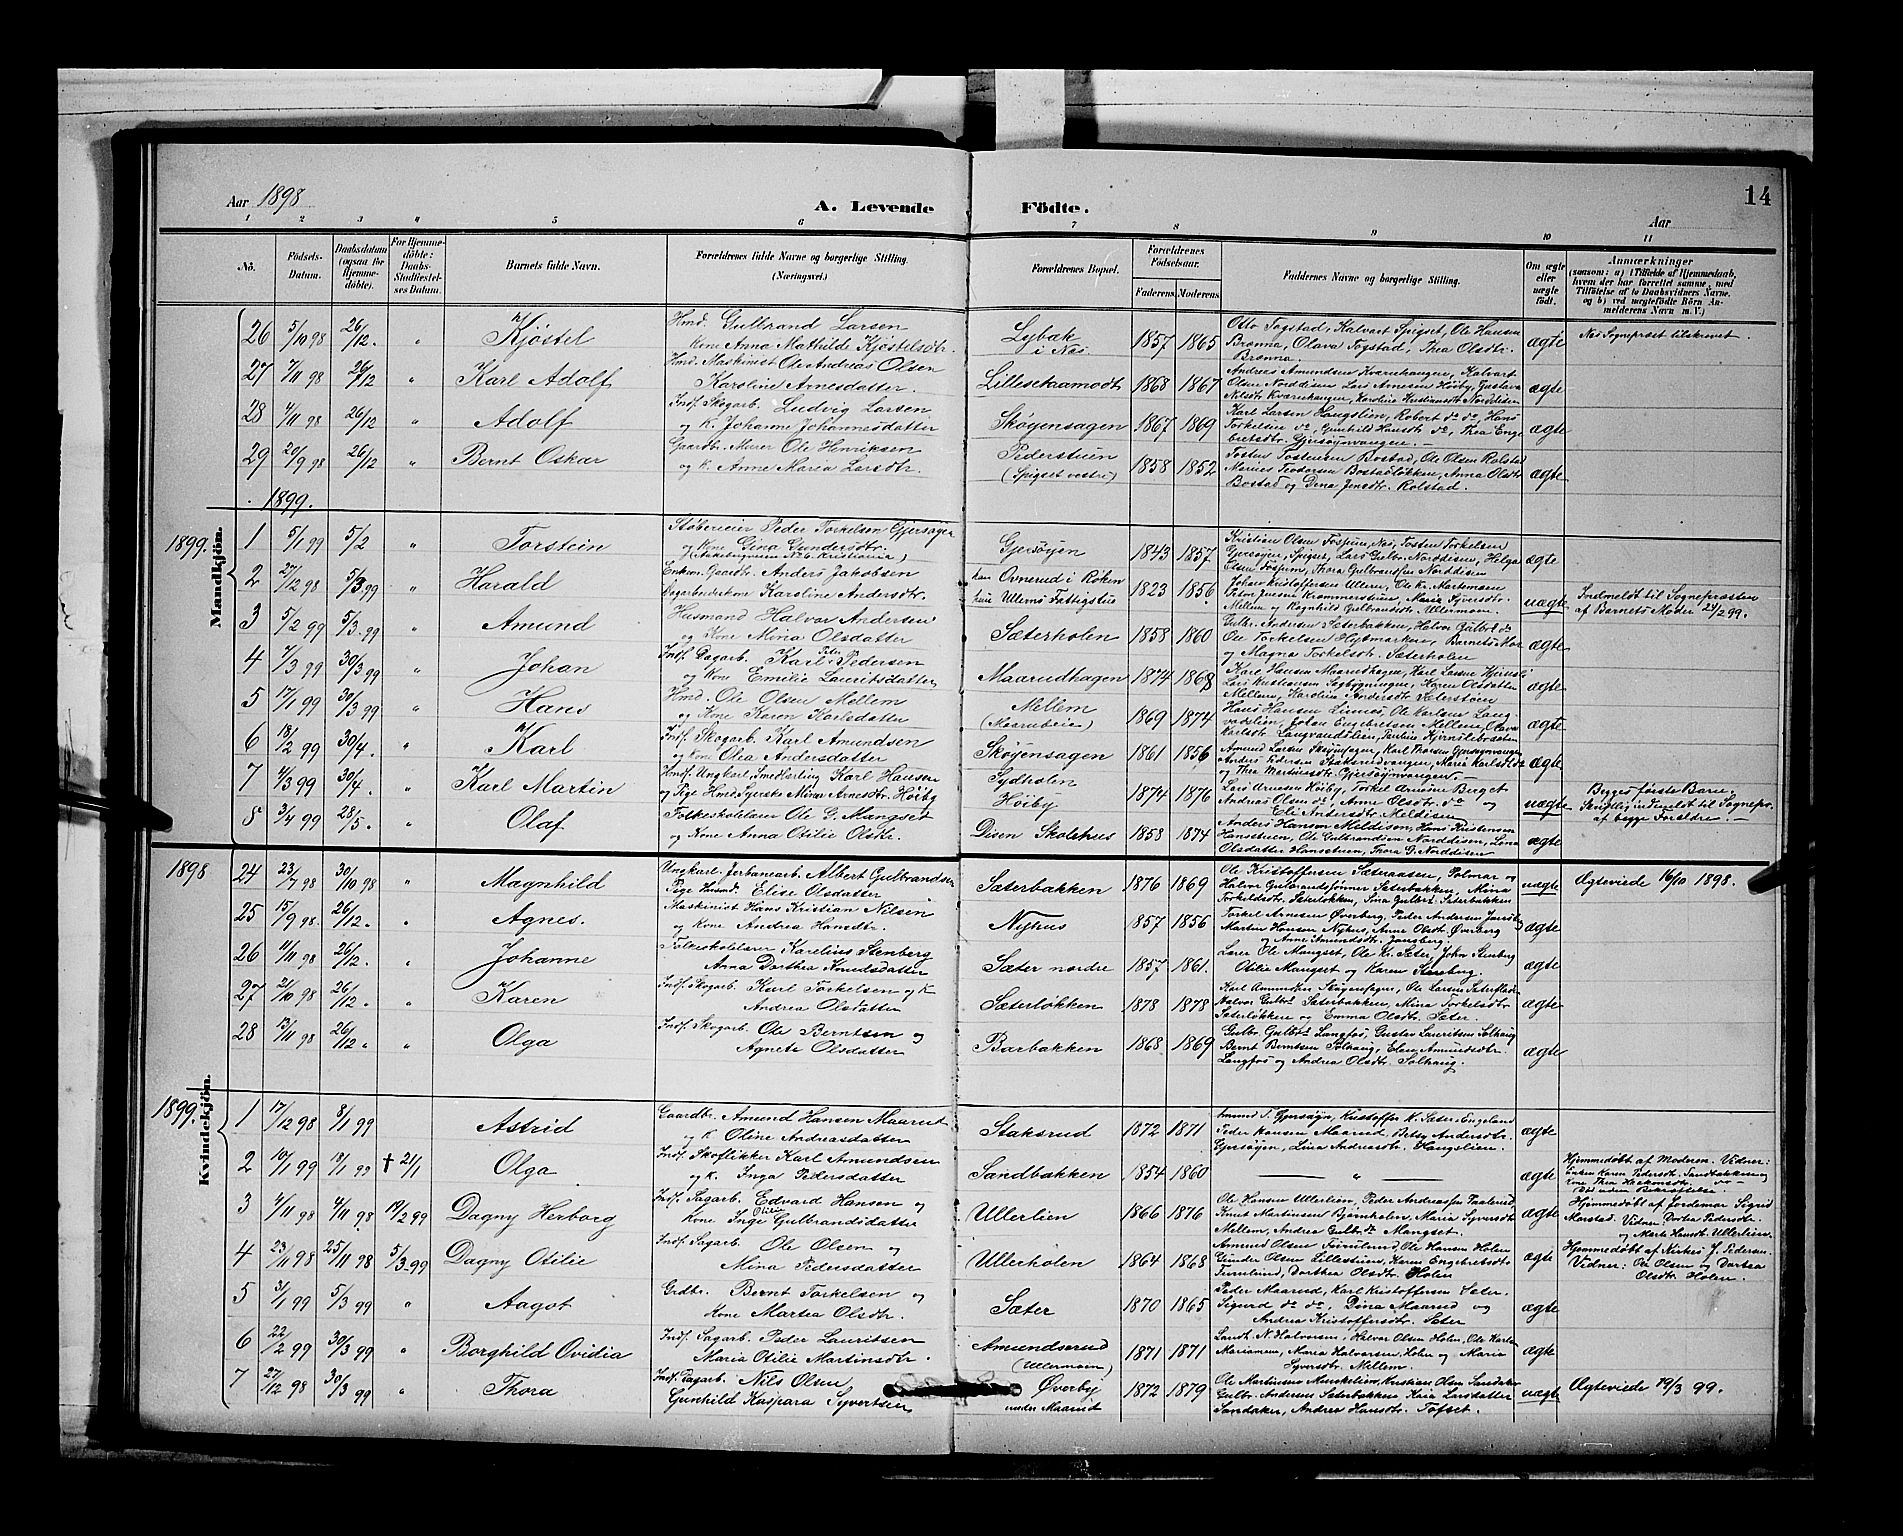 Aar 1898
A. Levende Födte.
14
Aar
1 2 3 " 5 6 7 8 9 10 11
No. Födsels-Datum. Daabsdatum (ogsaa for Hjemme-döbte). For Hjemme-döbte: Daabs-Stadfæstel-ses Datum. Barnets fulde Navn. Forældrenes fulde Navne og borgerlige Stilling. (Næringsvei.) Forældrenes Bopæl. Forældrenes Födselsaar. Faderens. Moderens. Faddernes Navne og borgerlige Stilling. Om ægte eller uægte födt. Anmærkninger (saasom: a) i Tilfælde af Hjemmedaab, hvem der har forrettet samme, med Tilföielse af to Daabsvidners Navne, og b) ved uægtefödte Börn Anmelderens Navn m. V.)
26 5/10 98 26/12. " Kjøstel Hmd. Gulbrand Larsen Kone Anna Mathilde Kjøstelsdtr. Lybak i Nes 1857 1865 Otto Togstad, Halvart Spigset, Ole Hansen Brønna, Olava Togstad, Thea Olsdtr. Brønna. ægte Nes Sogneprest tilskrevet
27 7/11 98 26/12 " Karl Adolf Hmd. Maskinist Ole Andreas Olsen Karoline Arnesdatter. Lillesetaamodt 1868 1867 Andreas Amundsen Kværnhaugen, Halvart Olsen Norddisen Lars Arnesen Høiby, Gustava Nilsdtr Kværnhaugen, Karoline Kristiansdtr Norddisen ægte
28 4/11 98 26/12 " Adolf Indf. Skogarb. Ludvig Larsen og K. Johanne Johannesdatter Skøyensagen 1867 1869 Karl Larsen Haugslien, Robert do do, Hans Torkelsen do, Gunhild Hansdtr do, Thea Engebretsdtr. Gjersøynvangen. — ægte
29 20/9 98 26/12 " Bernt Oskar Gaardbr. Murer Ole Henriksen og K. Anne Maria Larsdtr. Pederstuen (Spigset vestre) 1858 1852 Tosten Tostensen Bostad, Ole Olsen Rolstad Marius Teodorsen Bostadløkken, Anna Olsdtr Bostad og Dina Jensdtr. Rolstad. ægte
1899.
1899. Mandkjön.
1 5/1 99 5/2 " Torstein Støberieier Peder Torkelsen Gjersøyen og Kone Gina Gundersdtr. Gjersøyen 1843 1857 Kristian Olsen Fossum, Nes, Tosten Torkelsen Gjersøyen, Spigset, Lars Gulbr. Norddisen, Helga Olsen Fossum, Thora Gulbrandsen Norddisen ægte
2 27/12 98 5/3 99 " Harald Enkem. Gaardbr. Anders Jakobsen Dagarbeiderske Karoline Andersdtr. han Ovnerud i Røken hun Ullerns Fattigstue 1823 1856. Johan Kristoffersen Ullern, Ole Kr. Martensen, Maria Syversdtr. Mellem og Ragnhild Gulbrandsdtr. Ullermoen. uægte Indmeldt til Sogneprosten af Barnets Moder 24/2 99.
3 5/2 99 5/3 99 " Amund Husmand Halvor Andersen og Kone Mina Olsdatter Sæterholen 1858 1860 Gulbr. Andersen Sæterbakken, Halvor Gulbr. do Ole Torkelsen Hytmarken, Barnets Mor og Magna Torkelsdtr. Sæterholen ægte
4 7/3 99 30/3 99 " Johan Indf. Dagarb. Karl Pedersen og Kone Emilie Lauritsdatter Maarudhagen 1874 1868 Karl Hansen Maarudhagen, Karl Larsen, Lars Kristiansen Sagbygningen, Karen Olsdatter Mellem, Karoline Andersdtr. Sæterstøen ægte
5 17/1 99 30/3 99 " Hans Hmd. Ole Olsen Mellem og Kone Karen Karlsdatter Mellem (Maarubeie) 1869 1874 Hans Hansen Linnes, Ole Karlsen Langvadslien, Johan Engebretsen Mellem, Olava Karlsdtr. Langvandslien, ægte
6 18/2 99 30/4. " Karl Indf. Skogarb. Karl Amundsen og Kone Olea Andersdatter Skøyensagen 1861 1856 Amund Larsen Skøyensagen, Karl Thorsen Gjersøynvangen Anders Pedersen Staksrudvangen, Maria Karlsdtr. do og Thea Martinesdtr. Gjersøynvangen — ægte
7 4/3 99 30/4. " Karl Martin Hmdf. Ungkarl, Smedlærling Karl Hansen og Pige Hmd. Syerske Mina Arnesdtr. Høiby Sydholen Høiby 1874 1876 Lars Arnesen Høiby, Torkel Arnesen Berget Andreas Olsen do, Anne Olsdtr. do og Eli Andersdtr. Meldisen. uægte Begges første Barn. Skriftlig indmeldt til Sognepr. af begge Forældre —
8 3/4 99 28/5. " Olaf Folkeskolelærer Ole G. Mangset og Kone Anna Otilie Olsdtr. Disen Skolehus 1858 1874 Anders Hansen Meldisen, Hans Kristensen Hansstuen, Ole Gulbrandsen Norddisen, Lina Olsdatter Hansstuen, Thora G. Norddisen ægte
1898
24 23/7 98 30/10 98 " Magnhild Ungkarl. Jerbanearb. Albert Gulbrandsen Pige Hansd. Elise Olsdatter Sæterbakken 1876 1869 Ole Kristoffersen Sæteraasen, Polmar og Halvor Gulbrandssønner Sæterbakken, Mina Torkildsdtr. Sæterløkken, Sina Gulbr. Sæterbakken uægte Ægteviede 16/10 1898.
25 15/9 98. 26/12. " Agnes. Maskinist Hans Kristian Nilsen og Kone Andrea Hansdtr. Nyhus 1857 1856 Torkel Arnesen Øverberg, Peder Andersen, Martin Hansen Nyhus, Anne Olsdtr. Øverberg og Anne Amundsdtr. Jansberg. ægte
26 11/11 98 26/12. " Johanne Folkeskolelærer Karelius Stenberg Anna Dorthea Knudsdatter Sæter nordre 1857 1861. Lærer Ole Mangset, Ole Kr. Sæter, John Stenberg Otilie Mangset og Karen Stenberg. ægte
27 21/10 98 26/12. " Karen Indf. Skogarb. Karl Torkelsen og K Andrea Olsdatter Sæterløkken 1878 1878 Karl Amundsen Skøyensagen, Ole Larsen, Halvor Gulbr. Sæterbakken, Mina Torkelsdtr. Sæterløkken og Emma Olsdtr. Sæter. ægte
28 13/11 98 26/12. " Olga Indf. Skogarb. Ole Berntsen og Agnete Olsdatter Barbakken 1868 1869 Gulbr. Gulbr. Langfos, Gustav Lauritsen Solhaug Bernt Berntsen Solhaug, Elen Amundsdtr. Langfos og Andrea Olsdtr. Solhaug. ægte
1899. Kvindekjön.
1 17/12 98 8/1 99 Astrid Gaardbr. Amund Hansen Maarud og K Oline Andreasdatter Staksrud 1872 1871 Amund S. Gjersøyn, Kristoffer K. Sæter, Engeland Peder Hansen Maarud, Betsy Andersdtr. Gjersøyen, Lina Andreasdtr. Haugslien. ægte
2 10/1 99 18/1 99 † 21/1 Olga Indf. Skoflikker Karl Amundsen og K. Inga Pedersdatter Sandbakken 1854 1860 — " — ægte Hjemmedøbt af Moderen. Vidner: Enken Karen Pedersdtr. Sandbakken og Kone Thea Haskonsdtr. do — Død uden Bekræftelse.
3 4/11 98 4/11 98 19/2 99 Dagny Herborg Indf. Sagarb. Edvard Hansen og Kone Inge Otilie Gulbrandsdatter Ullerlien 1866 1876 Ole Hansen Ullerlien, Peder Andreassen, Knut Martinsen Bjørnholen, Maria Syversdtr. Mellem, Andrea Gulbr. do Mangset. ægte Hjemmedøbt af Jordemor Sigrid Morstad. Vidner: Dortea Pedersdtr. og Marte Hansdtr. Ullerlien.
4 23/11 98 25/11 98 5/3 99 Dagny Otilie Indf. Sagarb. Ole Olsen og Mina Pedersdatter Ullerholen 1864 1868 Amund Olsen Furulund, Ole Hansen Holen Gunder Olsen Lillestuen, Karen Engebretsdtr. Furulund, Dorthea Olsdtr. Holen ægte Hjemmedøbt af Kirkes. J. Pedersen. Vidner: Ole Olsen og Dortea Olsdtr. Holen.
5 3/1 99 5/3 99 " Aagot Grdbr. Bernt Torkelsen og Kone Martea Olsdtr. Sæter 1870 1865 Peder Maarud, Karl Kristoffersen Sæter. Sigurd do do, Dina Maarud og Andrea Kristoffersdtr. Sæter ægte
6 22/2 99 30/3 99 " Borghild Ovidia Indf. Sagarb. Peder Lauritsen Maria Otilie Martinsdtr. Amundsrud (Ullermoen) 1871 1871 Landh. N. Halvorsen, Halvor Olsen Holen, Ole Karlsen Mariamoen, Maria Halvorsen, Holen og Maria Syversdtr. Mellem. ægte
7 27/12 98 30/3 99 " Thora Indf. Dagarb. Nils Olsen Gunhild Kaspara Syvertsen Øverby under Maarud 1872 1879 Ole Martinsen, Kristian Olsen Sandaker Gulbr. Andersen Sæterbakken, Kaia Larsdatter Sandaker, Andrea Hansdtr. Tofset. uægte Ægteviede 19/3 99.